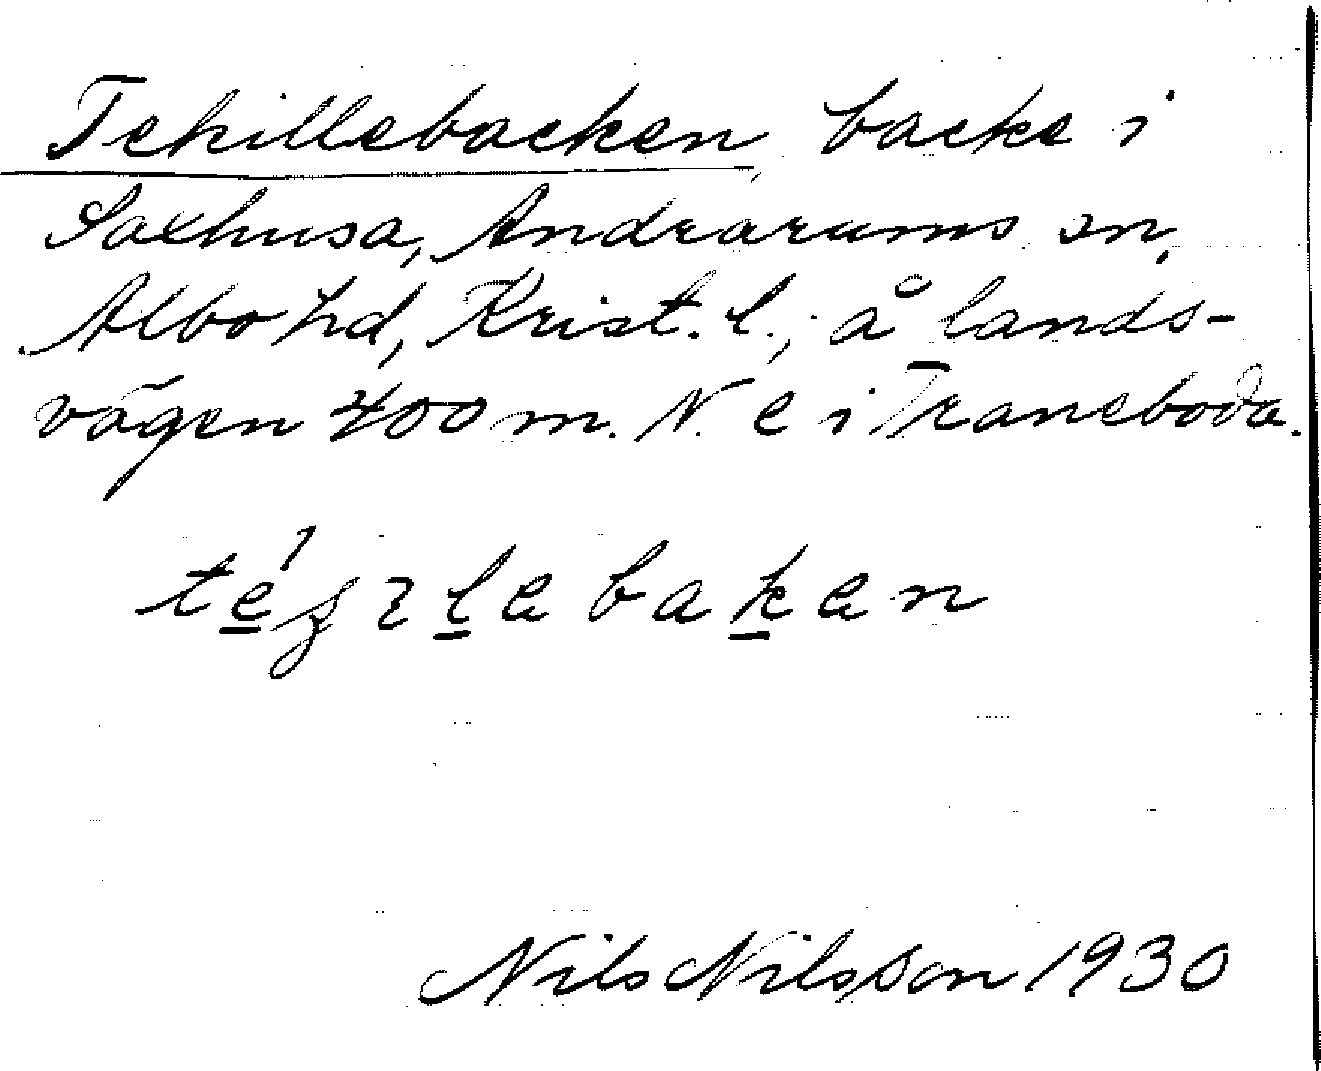 Tehillebacken, backe i
Saxhusa, Andrarums sn,
Albo hd, Krist. l., å lands-
vägen 400 m. N. e i Traneboda.
Nils Nilsson 1930